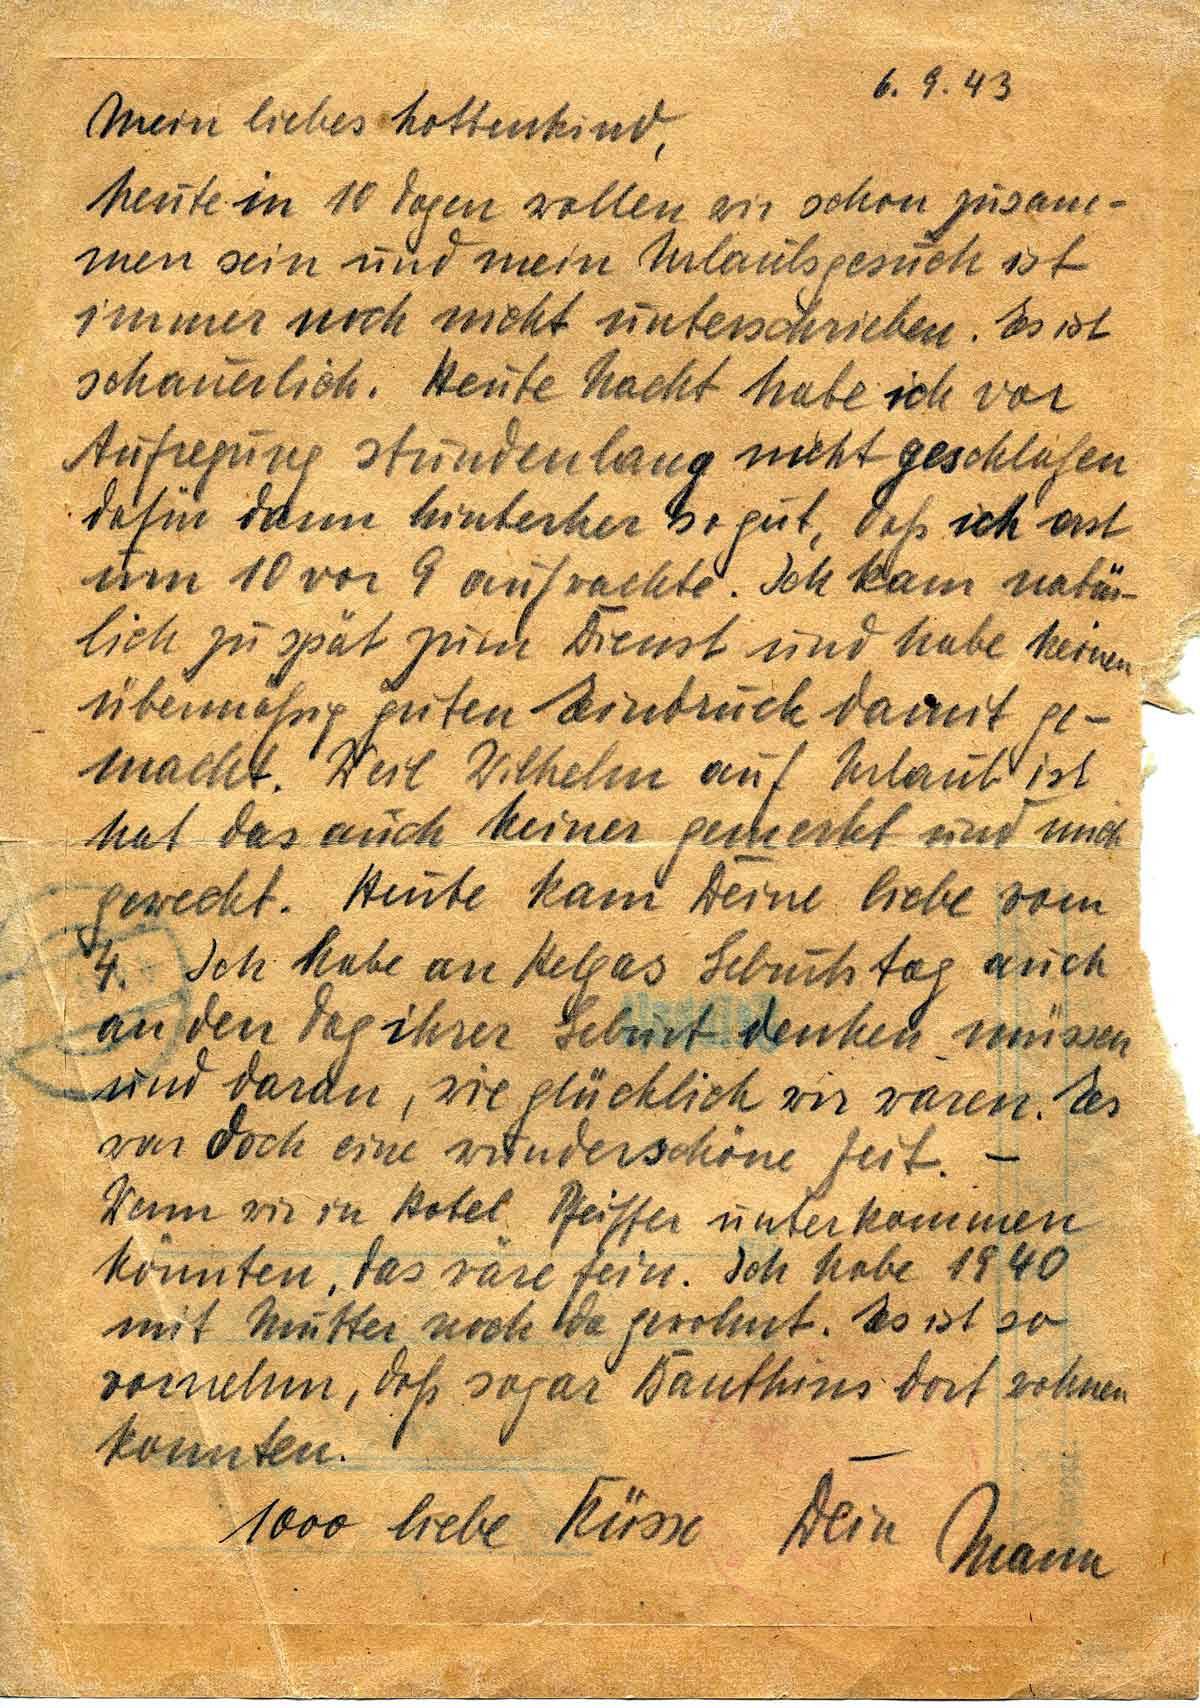 6. 9. 43
Mein liebes Lottenkind,
heute in 10 Tagen wollen wir schon zusam-
men sein und mein Urlaubsgesuch ist
immer noch nicht unterschrieben. Es ist
schauerlich. Heute Nacht habe ich vor
Aufregung stundenlang nicht geschlafen
dafür dann hinterher so gut, daß ich erst
um 10 vor 9 aufwachte. Ich kam natür-
lich zu spät zum Dienst und habe keinen
übermäßig guten Eindruck damit ge-
macht. Weil Wilhelm auf Urlaub ist
hat das auch keiner gemerkt und mich
geweckt. Heute kam Deine liebe vom
4. Ich habe an Helgas Geburtstag auch
an den Tag ihrer Geburt denken müssen
und daran, wie glücklich wir waren. Es
war doch eine wunderschöne Zeit. –
Wenn wir in Hotel Pfeiffer unterkommen
könnten, das wäre fein. Ich habe 1940
mit Mutter noch da gewohnt. Es ist so
vornehm, daß sogar dort wohnen
konnten.
1000 liebe Küsse Dein Mann